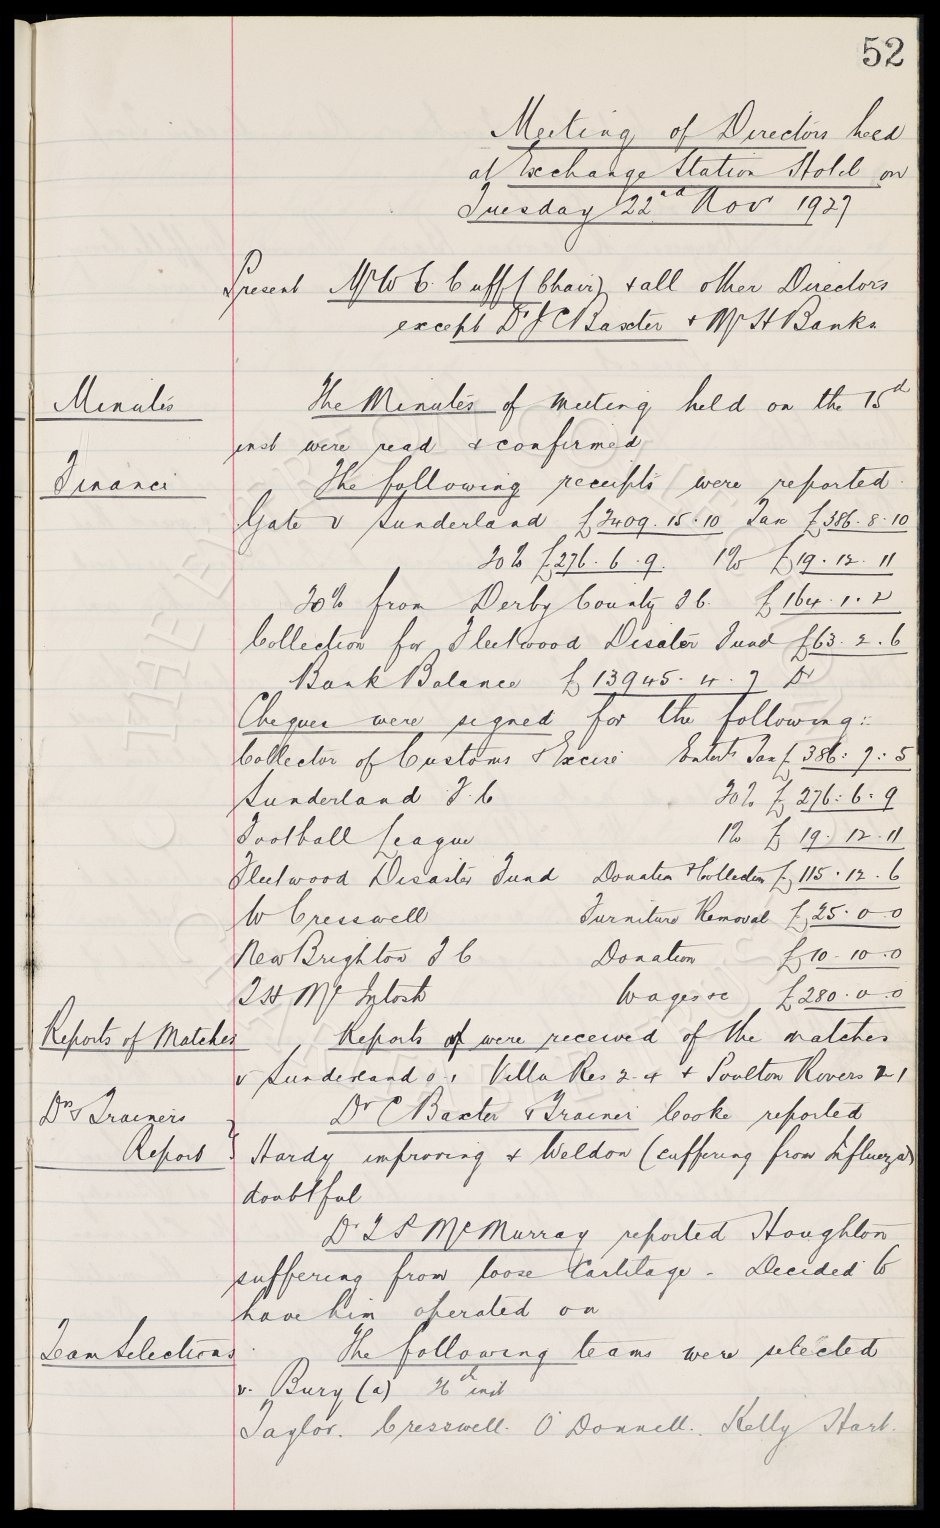 52
Meeting of Directors held
at Exchange Station Hotel on
Tuesday 22nd Nov 1927
Present Mr W C Cuff (Chair) & all other Directors
except Dr J C Baxter & Mr H Banks
Minutes The Minutes of meeting held on the 15th
inst were read & confirmed
Finance The following receipts were reported.
Gate v Sunderland £2409.15.10 Tax £386.8.10
20% £276.6.9. 1% £19.12.11
20% from Derby County F C. £164.1.2
Collection for Fleetwood Disaster Fund £63.2.6
Bank Balance £13945.4.7 Dr
Cheques were signed for the following:-
Collector of Customs & Excise Entert Tax £386:7:5
Sunderland F.C 20% £276:6:9
Football League 1% £19.12.11
Fleetwood Disaster Fund Donation & Collection £115.12.6
W Cresswell Furniture Removal £25.0.0
New Brighton F C Donation £10.10.0
T H McIntosh Wages &c £280.0.0
Reports of Matches Reports were received of the matches
v Sunderland 0-1 Villa Res 2-4 & Poulton Rovers 2 1
Drs & Trainers Report } Dr C Baxter & Trainer Cooke reported
Hardy improving & Weldon (suffering from Influenza)
doubtful
Dr T P McMurray reported Houghton
suffering from loose Cartilage - Decided to
have him operated on
Team Selections The following teams were selected
v. Bury (a) 26th inst
Taylor. Cresswell. O'Donnell. Kelly Hart.